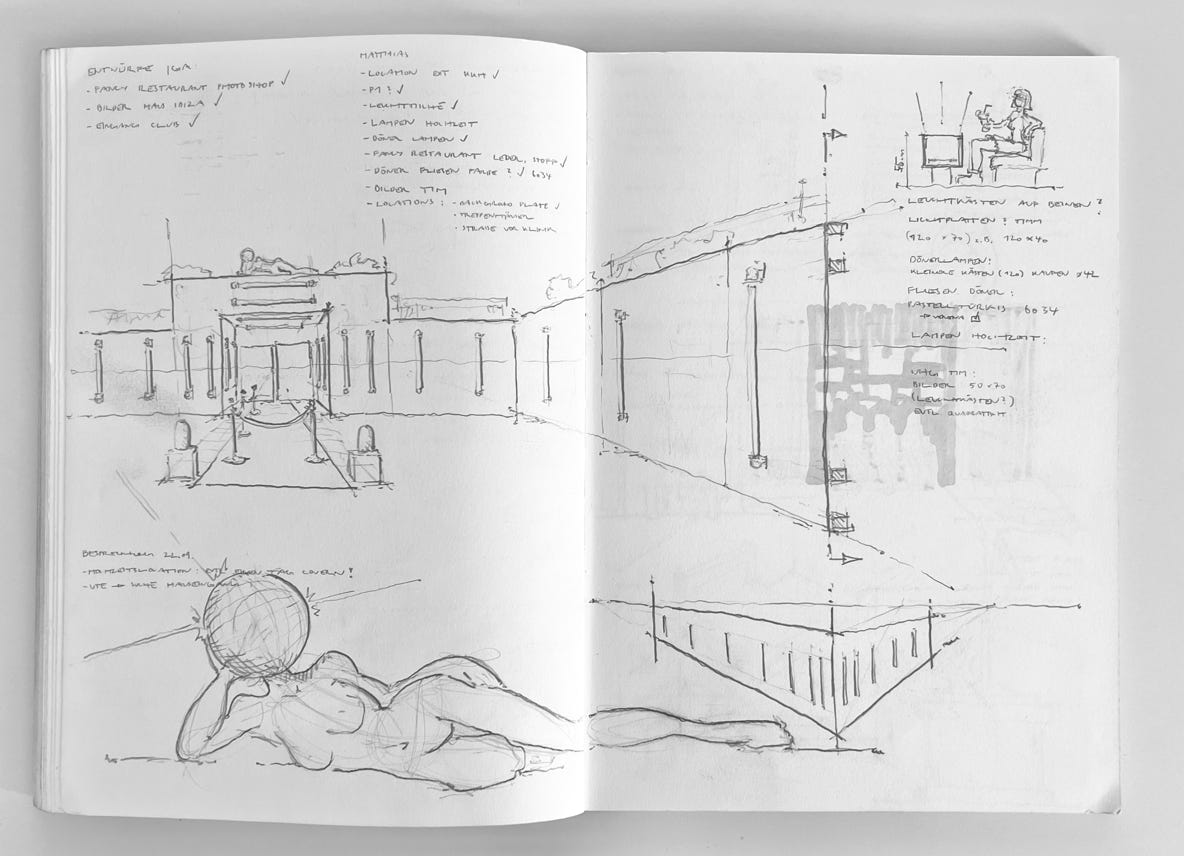 ENTWÜRFE IGA
- FANCY RESTAURANT PHOTOSHOP ✓
- BILDER HAUS IBIZA ✓
- EINGANG CLUB ✓
MATTHIAS
- LOCATION EXT ✓
- P1? ✓
- ✓
- LAMPEN HOCHZEIT
- DÖNER LAMPEN ✓
- FANCY RESTAURANT LEDER, STOFF ✓
- DÖNER FLIESEN FARBE? ✓ 6034
- BILDER TIM
- LOCATIONS: - BACKGROUND PLATE ✓
• TREPPENHÄUSER
• STRAßE VOR KLINIK
BESPRECHUNG 22.9.
- HOCHZEITSLOCATION: EVTL EINEN TAG COVERN!
- UTE → HAUSEINGANG
LEUCHTKÄSTEN AUF BEINEN?
LICHTPLATTEN? TIMM
(120 × 70) z.B. 120×40
DÖNERLAMPEN:
KLEINERE KÄSTEN (120) KAUFEN
FLIESEN DÖNER:
PASTELLTÜRKIS 6034
LAMPEN HOCHZEIT:
TIM:
BILDER 50×70
(LEUCHTKÄSTEN?)
EVTL. QUADRATISCH